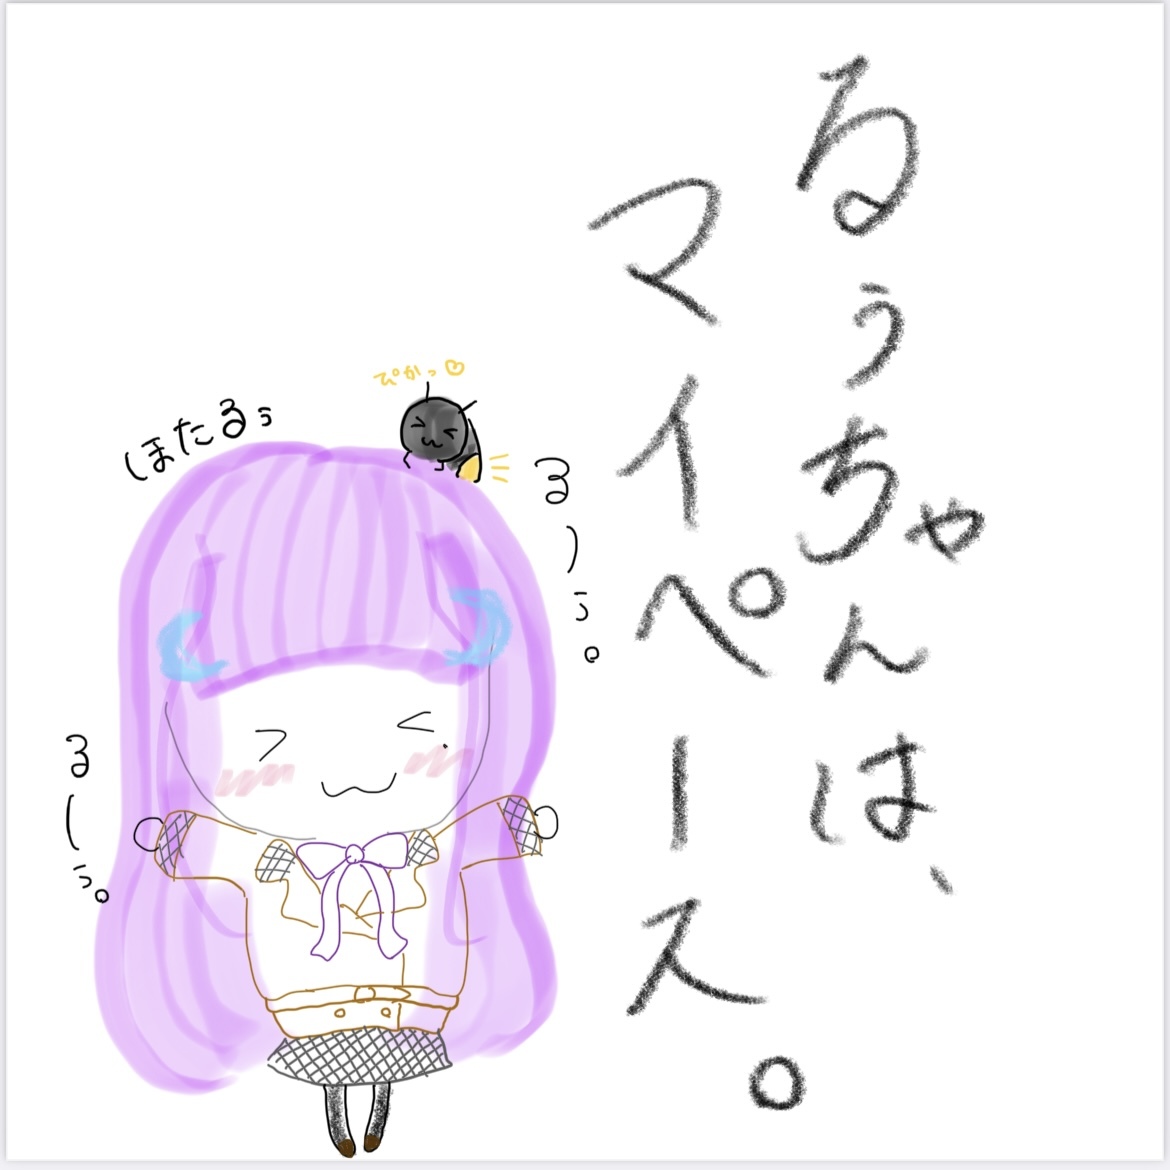 るぅちゃんは、
マイペース。
ぴかっ♡
ほたるぅ
るーぅ。
るーぅ。